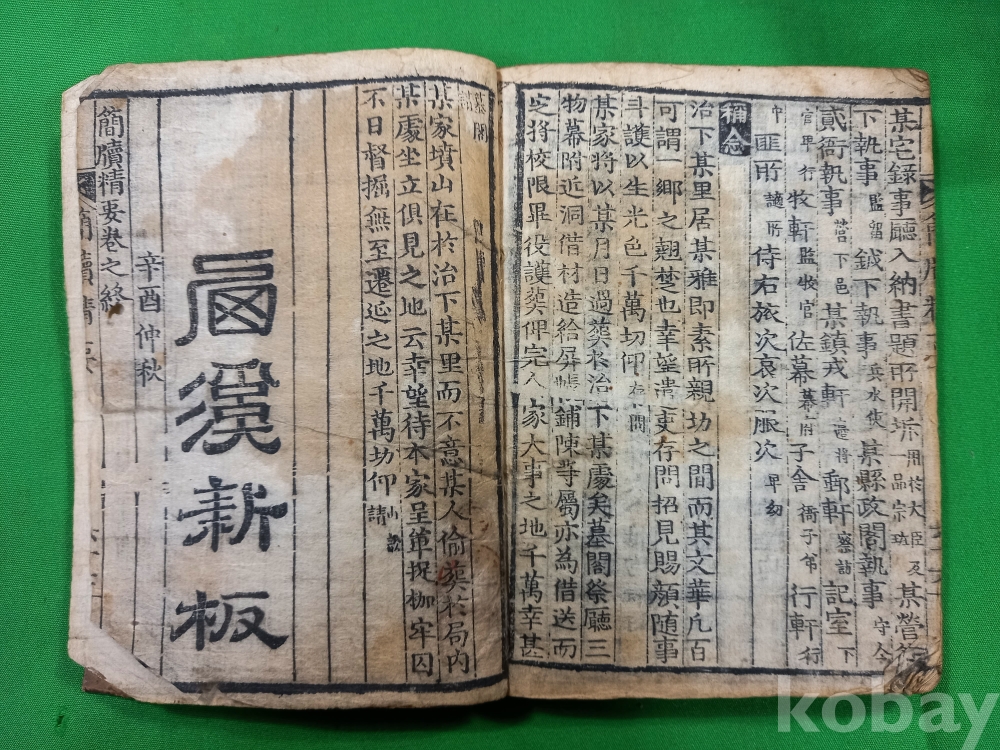 某宅録事廳入納書題所開坼用於大臣及品宗功某營行
下執事監留鉞下執事兵水使某縣政閣執事守令
貳衙執事營下邑某鎮戎軒邊將郵軒察訪記室下
官卑行牧軒監收官佐幕幕府子舍衙子弟行軒行
中匪所謫所侍右旅次哀次服次卑幼
稱念
治下某里居某雅即素所親切之間而其文華凡百
可謂一鄉之翹楚也幸望遣吏存問招見賜顔隨事
斗護以生光色千萬切仰存問
某家將以某月日過葬於治下某處矣墓閣祭廳三
物幕附近洞借材造給屏帳鋪陳等屬亦為借送而
定將校限畢役護葬俾完人家大事之地千萬幸甚
墓閣
某家墳山在於治下某里而不意某人偷葬於局内
某處坐立俱見之地云幸望待本家呈單捉枷牢囚
不日督掘無至遷延之地千萬切仰山訟請
新板
辛酉仲秋
簡牘精要卷之終
簡牘精要
kobay